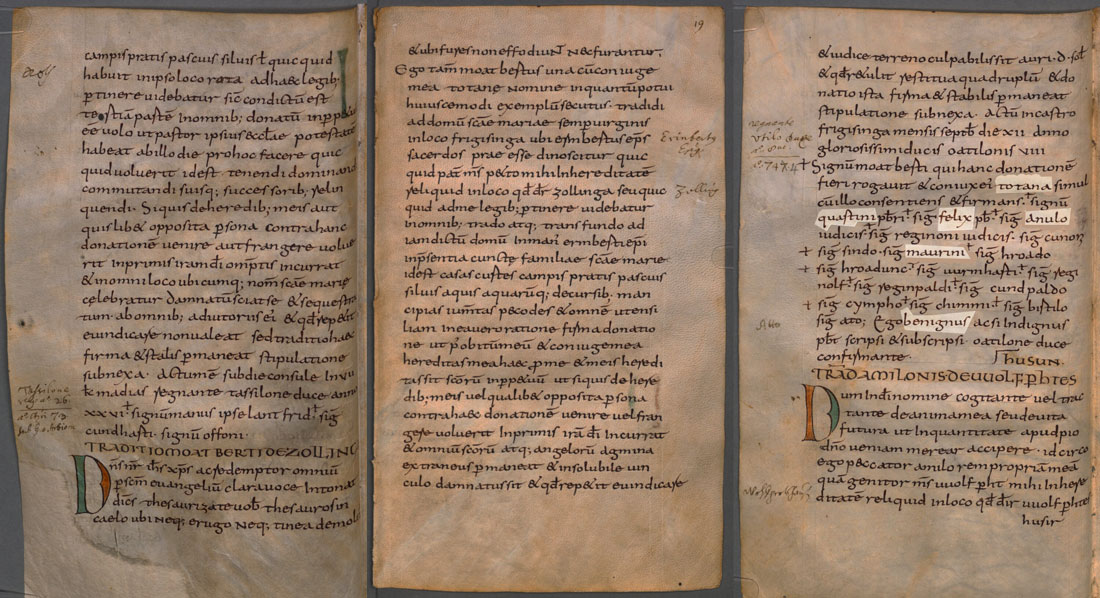 campis pratis pascuis silvis ł quic quid
habuit in ipso loco rota ad haec legib;
ptinere videbatur sic condictū est
testā paste in omnib; donatū in
ee volo ut pastor ipsius eccłae potestatē
habeat ab illo die pro hoc facere quic
quid voluerit id est tenendi
commutandi suisq; successorib; relin
quendi. Si quis de heredib; meis aut
quislib& opposita psona contra hanc
donationē venire aut frangere
rit inprimis iram di omptis incurrat
& in omni loco ubicumq; nom scae marie
celebratur damnatus ciat se & sequestra
tum ab omnib; adiutoris ei & qđ rep&it
evindicare non valeat sed traditio haec
firma & stalis pmaneat stipulatione
subnexa. Actum sub die consule
k madias regnante tassilone duce anno
xxvi signum anus ipse lantfrid sig
cundhasti. signū offoni.
TRADITIO MOATBERTI DE ZOLLING
Dn̄s n̄r ihs xps ac redemptor omniū
p scm evangeliū clara voce intonat
dicens thesaurizate vob thesauros in
caelo ubi neq; erugo neq; tinea demol
19
& ubi fures non effodiunt nec furantur.
Ego tam moatbertus una cū coniuge
mea totane nomine in quantū potui
huiuscemodi exemplū secutus. tradidi
ad domū scae mariae semp virginis
in loco frigisinga ubi ermbertus eps
sacerdos praeesse dinoscitur quic
quid pat ms p& to mihi in hereditatē
reliquid in loco qđ dr zollinga seu quic
quid ad me legib; ptinere videbatur
in omnib; trado atq; transfundo ad
iandictū domū in manū ermberti epi
in psentia cuncte familiae scae marie
id est casas curtes campis pratis pascuis
silvis aquis aquarūq; decursib. man
cipias iumtas pecodes & omnē utensi
liam in ea vero ratione firma donatio
ne ut p obitū meū & coniuge mea
hereditas mea haec p me & meis heredi
tassit scorū in pp&uū ut si quis de here
dib; meis vel qualib& opposita psona
contra haec donationē venire vel fran
gere voluerit inprimis irā di incurrat
& omniū scorum atq; angelorū agmina
extraneus pmaneat & insolubile vin
culo damnatus sit & qđ rep&it evindicare
& iudice terreno culpabilis sit auri. d. sol
& qđ rep&ulit restituat quadruplū & do
natio ista firma & stabilis pmaneat
stipulatione subnexa. actū in castro
frigisinga mensis septb die xii anno
gloriosissimi ducis oatilonis xiii
† Signū moatberti qui hanc donationē
fieri rogavit & coniux ei totana simul
cū illo consentiens & firmans. signū
quartini pbri. sig. felix pb. sig anulo
iudicis. sig reginoni iudicis. sig cunon
† sig sindo. sig maurini sig hroado
† sig hroadunc. sig vurmharti. sig regi
nolf. sig reginpaldi. sig cundpaldo
† sig cympho. sig chimmi. sig bistilo
sig ato; Ego benignus acsi indignus
pbt scripsi & subscripsi oatilone duce
confirmante. HUSUN.
TRAD AMILONIS DE UUOLFPHTES
Dum in di nomine cogitante vel trac
tante de anima mea seu de vita
futura ut in quantitate apud pio
dno veniam merear accipere. id circo
ego peccator anulo rem propriam meā
quā genitor ms uuolfpht mihi in here
ditatē reliquid in loco qđ dr uuolfphtes
husir